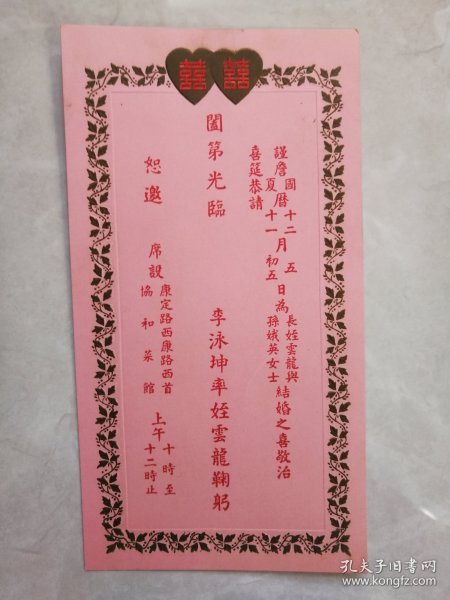 囍 囍
謹詹國曆十二月五日為長姪雲龍與結婚之喜敬治
夏十一初五 孫娥英女士
喜筵恭請
闔第光臨
李泳坤率姪雲龍鞠躬
恕邀
席設康定路西康路西首
協和菜館
上午十時至
十二時止
孔夫子旧书网
www.kongfz.com